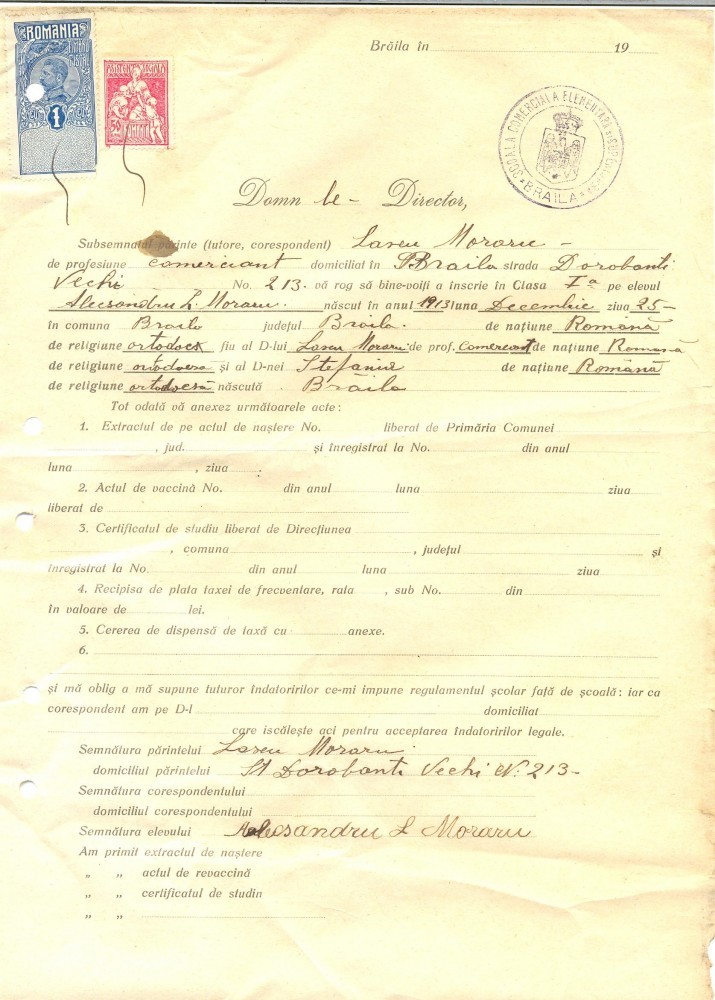 ROMANIA
TIMBRU FISCAL
1
ASISTENȚA SOCIALA
50
ROMANIA
Brăila în 19
ȘCOALA COMERCIALA ELEMENTARA
BRAILA
Domnule Director,
Subsemnatul părinte (tutore, corespondent) Lascu Moraru -
de profesiune comerciant domiciliat în Braila strada Dorobanti
Vechi No. 213. vă rog să bine-voiți a înscrie în Clasa Iª pe elevul
Alecsandru L. Moraru. născut în anul 1913 luna Decembrie ziua 25 -
în comuna Braila județul Brăila. de națiune Română
de religiune ortodocx fiu al D-lui Lascu Moraru de prof. comerciant de națiune Romană
de religiune ortodocsa și al D-nei Stefania de națiune Română
de religiune ortodocsă născută Brăila
Tot odată vă anexez următoarele acte :
1. Extractul de pe actul de naștere No. liberat de Primăria Comunei
, jud. și înregistrat la No. din anul
luna , ziua .
2. Actul de vaccină No. din anul luna ziua
liberat de
3. Certificatul de studiu liberat de Direcțiunea
, comuna , județul și
înregistrat la No. din anul luna ziua
4. Recipisa de plata taxei de frecventare, rata , sub No. din
în valoare de lei.
5. Cererea de dispensă de taxă cu anexe.
6.
și mă oblig a mă supune tuturor îndatoririlor ce-mi impune regulamentul școlar față de școală : iar ca
corespondent am pe D-l domiciliat
care iscălește aci pentru acceptarea îndatoririlor legale.
Semnătura părintelui Lascu Moraru
domiciliul părintelui St Dorobanti Vechi N: 213 -
Semnătura corespondentului
domiciliul corespondentului
Semnătura elevului Alecsandru L Moraru
Am primit extractul de naștere
„ „ actul de revaccină
„ „ certificatul de studiu
„ „